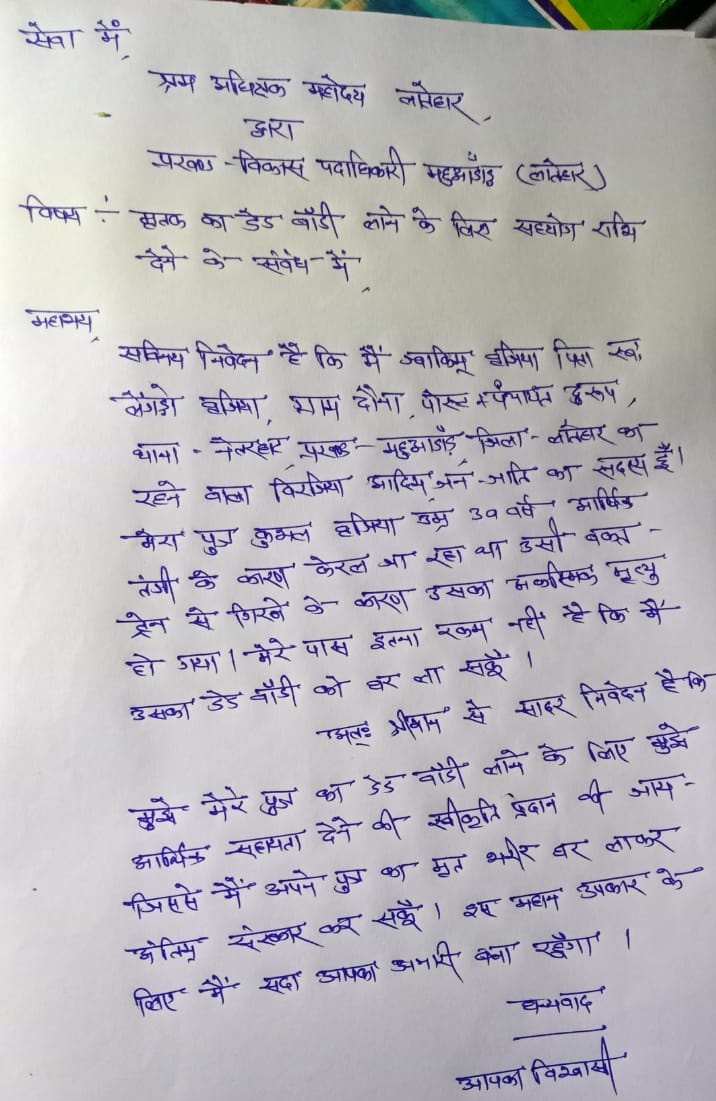 सेवा में,
श्रम अधिक्षक महोदय लातेहार,
द्वारा
प्रखण्ड -विकास पदाधिकारी महुआडाँड़ (लातेहार)
विषय :- मृतक का डेड बॉडी लाने के लिए सहयोग राशि
देने के संबंध में,
महाशय,
सविनय निवेदन है कि मैं ज्वाकिम बृजिया पिता स्व.
लेंगड़ो बृजिया, ग्राम दौना, पोस्ट + पंचायत दुरूप,
थाना - नेतरहाट, प्रखण्ड - महुआडाँड़, जिला - लातेहार का
रहने वाला विरजिया आदिम जन-जाति का सदस्य हैं।
मेरा पुत्र बृजिया उम्र 30 वर्ष आर्थिक
तंगी के कारण केरल जा रहा था उसी वक्त -
ट्रेन से गिरने के कारण उसका अकस्मिक मृत्यु
हो गया। मेरे पास इतना रकम नहीं है कि मैं
उसका डेड बॉडी को घर ला सकूँ।
अतः श्रीमान से सादर निवेदन है कि
मुझे मेरे पुत्र का डेड बॉडी लाने के लिए मुझे
आर्थिक सहायता देने की स्वीकृति प्रदान की जाय -
जिससे मैं अपने पुत्र का मृत शरीर घर लाकर
अंतिम संस्कार कर सकूँ। इस महान उपकार के
लिए मैं सदा आपका अभारी बना रहूँगा।
धन्यवाद
आपका विश्वासी